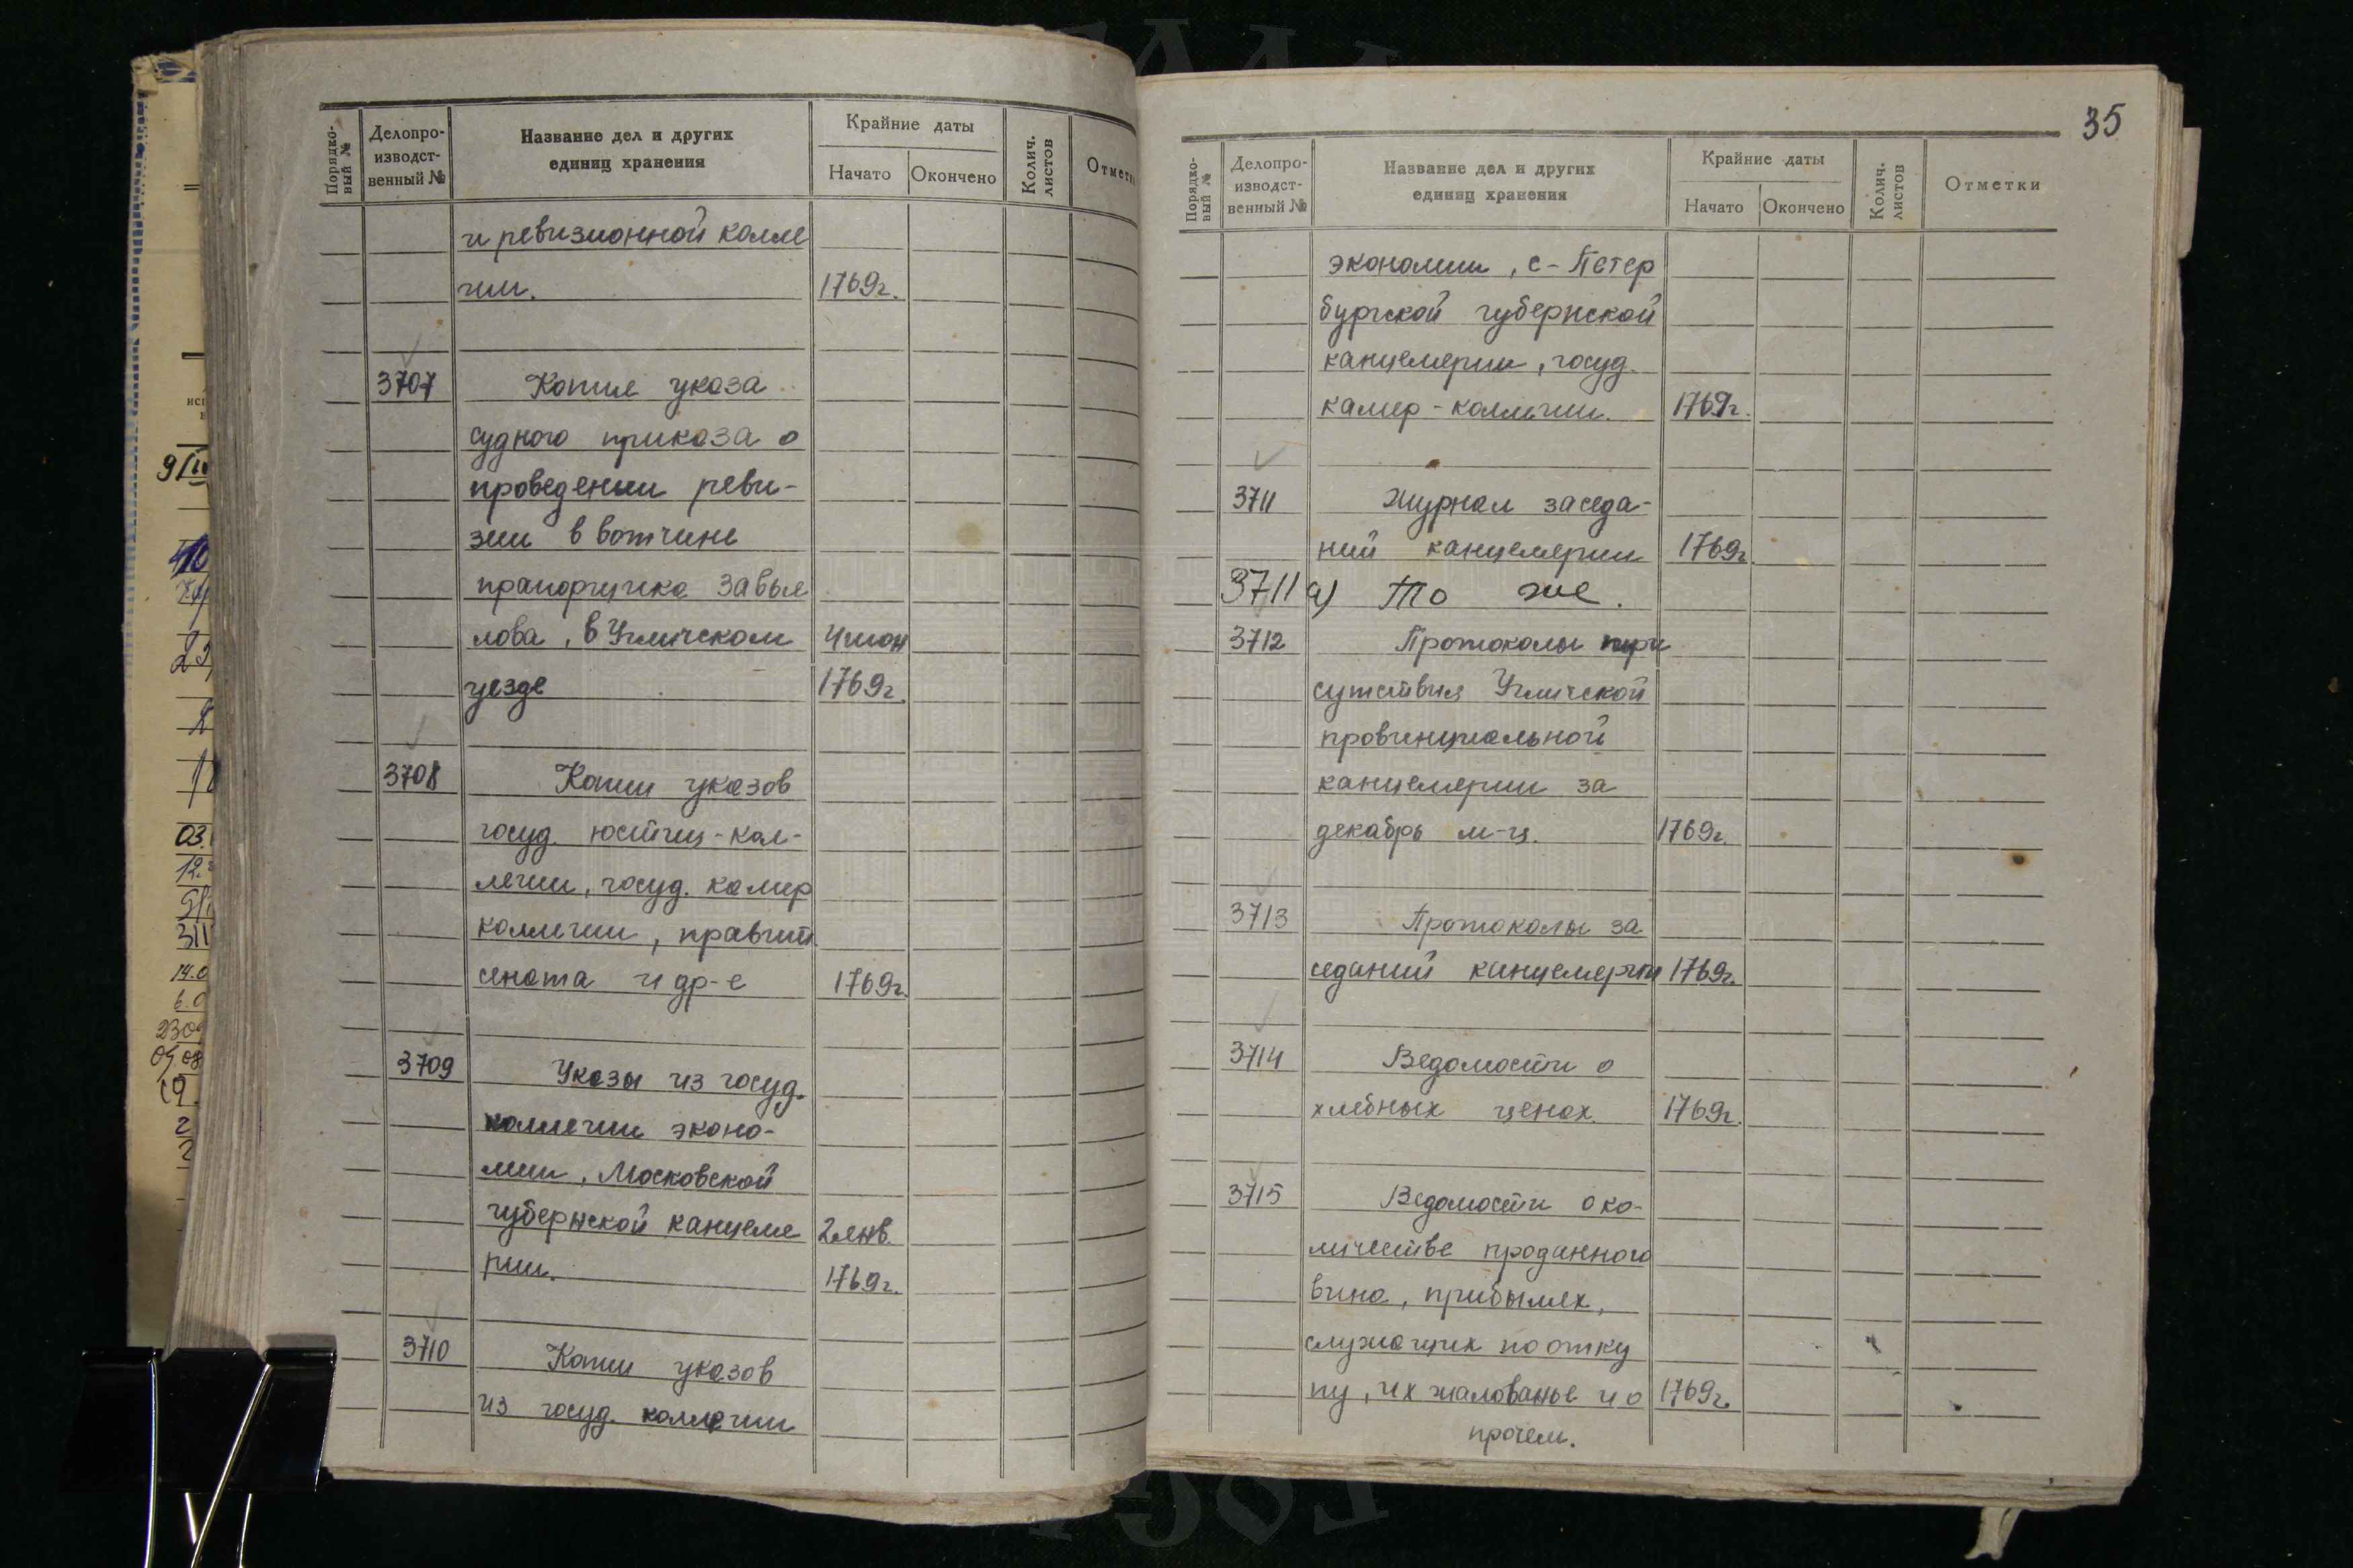 Порядко-
вый №
Делопро-
изводст-
венный №
Название дел и других
единиц хранения
Крайние даты
Начато
Окончено
Колич.
листов
Отметк
и ревизионной колле
гии. 1769г.
3707 Копия указа
судного приказа о
проведении реви-
зии в вотчине
прапорщика Завья
лова, в Угличском 4 июн
уезде 1769г.
3708 Копии указов
госуд. юстиц-кол-
легии, госуд. камер
коллегии, правит.
сената и др-е 1769г.
3709 Указы из госуд.
коллегии эконо-
мии, Московской
губернской канцеля 2 янв.
рии. 1769г.
3710 Копии указов
из госуд. коллегии
35
Порядко-
вый №
Делопро-
изводст-
венный №
Название дел и других
единиц хранения
Крайние даты
Начато
Окончено
Колич.
листов
Отметки
экономии, с-Петер
бургской губернской
канцелярии, госуд.
камер-коллегии. 1769г.
3711 Журнал заседа-
ний канцелярии 1769г.
3711 а) То же.
3712 Протоколы при
сутствия Угличской
провинциальной
канцелярии за
декабрь м-ц. 1769г.
3713 Протоколы за
седаний канцелярии 1769г.
3714 Ведомости о
хлебных ценах. 1769г.
3715 Ведомости о ко-
личестве проданного
вина, прибылях,
служащих по отку
пу, их жалованье и о 1769г.
прочем.